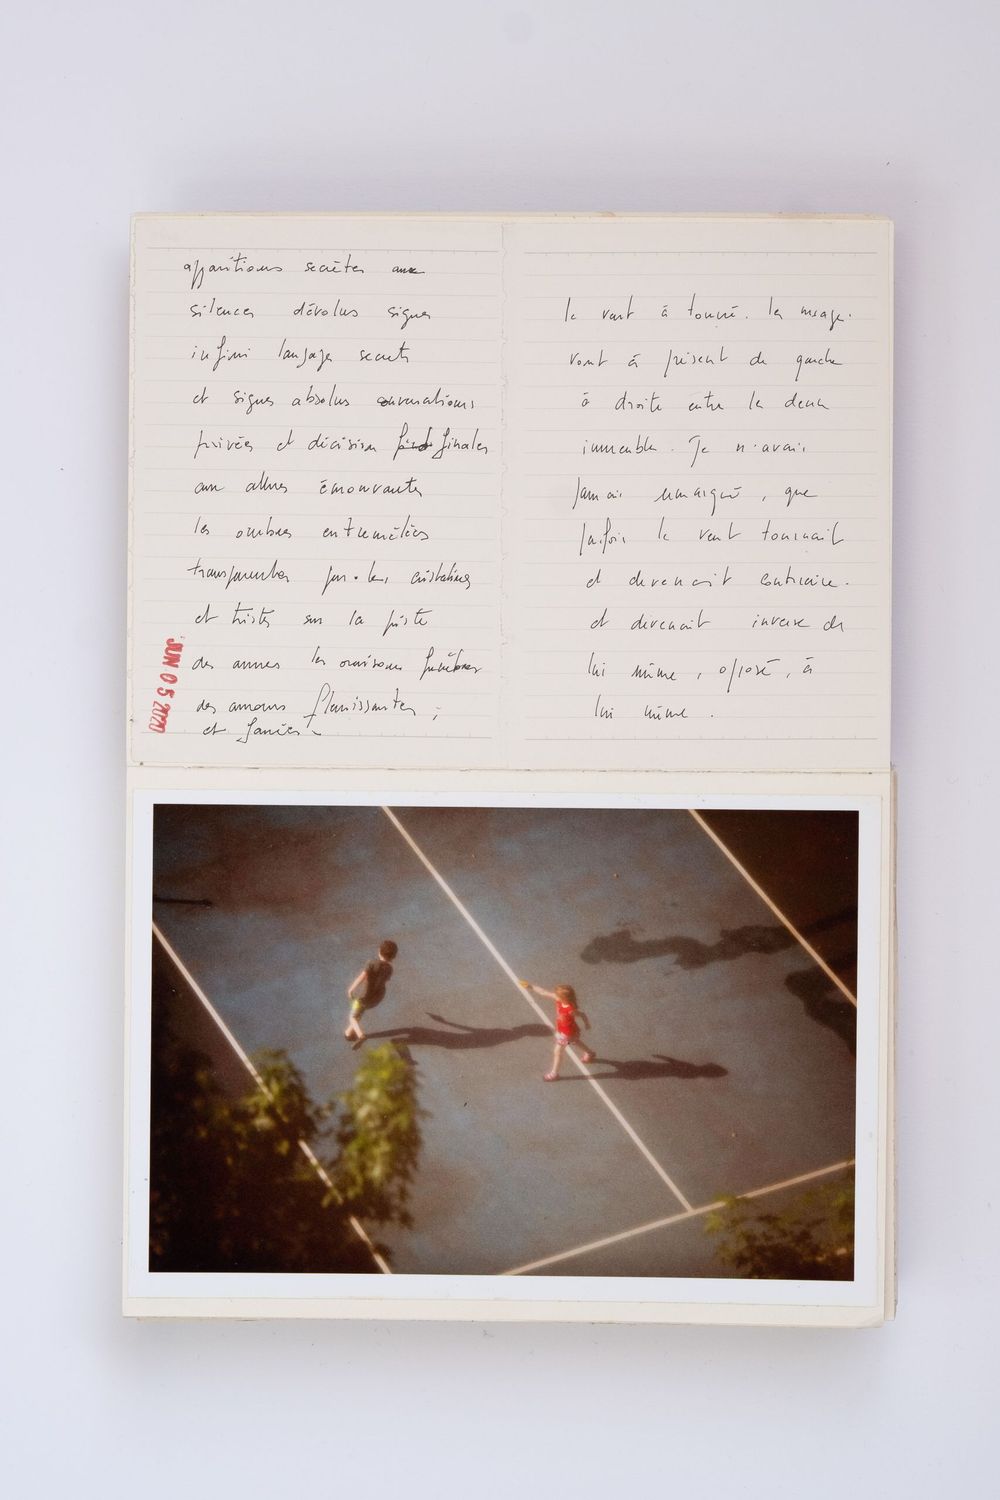 apparitions secrètes aux
silences dévolus signes
infini langages secrets
et signes absolus conversations
privées et décision finales
aux allures émouvantes
les ombres entremêlées
transparentes par les
et tristes sur la piste
des annes les oraisons funèbres
des amours flanissantes ;
et fanées
JUN 05 2020
le vent à tourné. les nuages
vont à présent de gauche
à droite entre les deux
immeubles. Je n'avais
jamais remarqué, que
parfois le vent tournait
et devenait contraire.
et devenait inverse de
lui même, opposé, à
lui même.